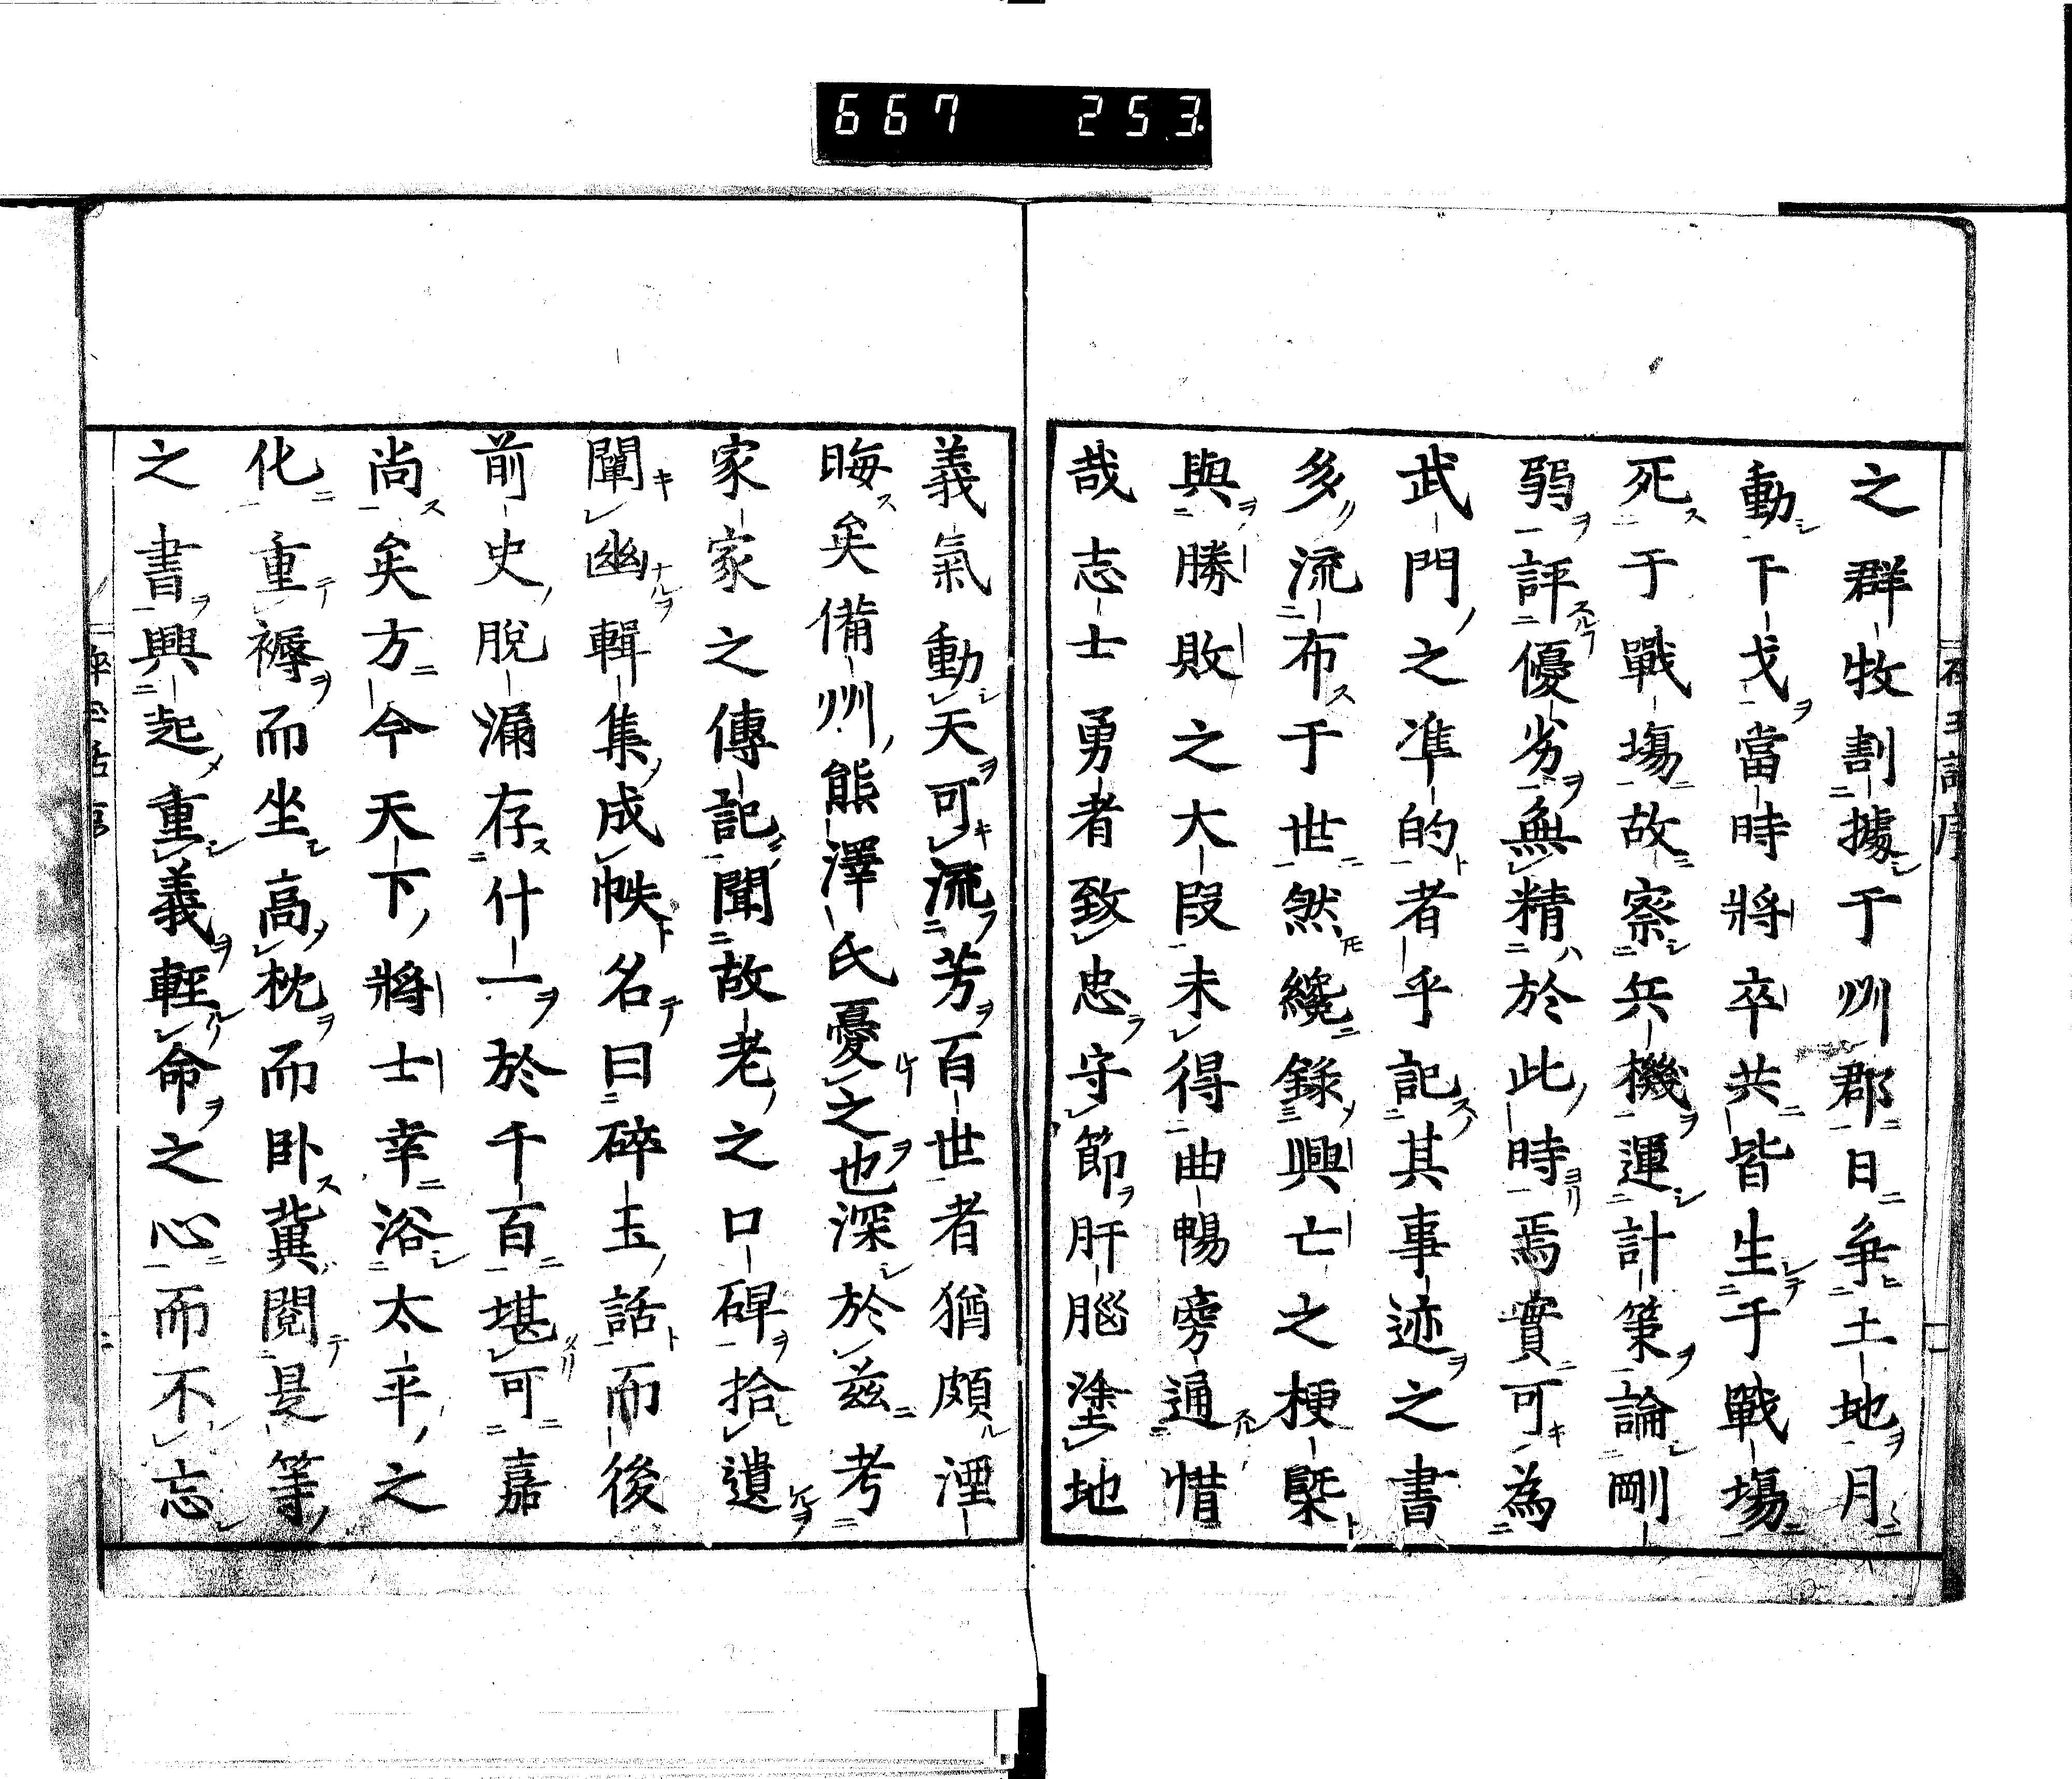 667 253
之群牧割據于州郡日爭土地月
動下戈當時將卒共皆生于戰場
死于戰場故察兵機運計策論剛
弱評優劣無精於此時焉實可為
武門之準的者乎記其事迹之書
多流布于世然纔錄興亡之梗槩
與勝敗之大段未得曲暢旁通惜
哉志士勇者致忠守節肝腦塗地
義氣動天可流芳百世者猶頗湮
晦矣備州熊澤氏憂之也深於茲考
家家之傳記聞故老之口碑拾遺
闡幽輯集成帙名曰碎玉話而後
前史脫漏存什一於千百堪可嘉
尚矣方今天下將士幸浴太平之
化重褥而坐高枕而臥冀閱是等
之書興起重義輕命之心而不忘